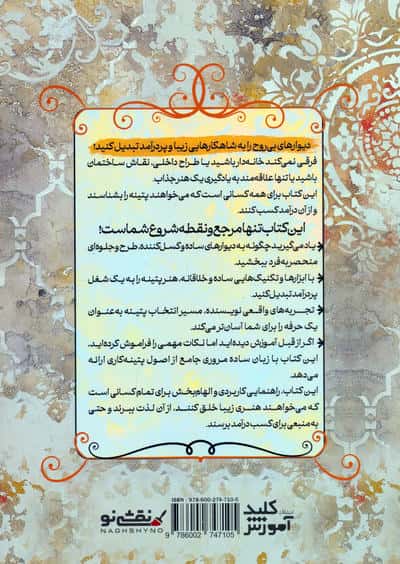 دیوارهای بی‌روح را به شاهکارهایی زیبا و پردرآمد تبدیل کنید!
فرقی نمی‌کند خانه‌دار باشید یا طراح داخلی، نقاش ساختمان
باشید یا تنها علاقه‌مند به یادگیری یک هنر جذاب.
این کتاب برای همه کسانی است که می‌خواهند پتینه را بشناسند
و از آن درآمد کسب کنند.
این کتاب تنها مرجع و نقطه شروع شماست!
یاد می‌گیرید چگونه به دیوارهای ساده و کسل‌کننده، طرح و جلوه‌ای
منحصربه‌فرد ببخشید.
با ابزارها و تکنیک‌هایی ساده و خلاقانه، هنر پتینه را به یک شغل
پردرآمد تبدیل کنید.
تجربه‌های واقعی نویسنده، مسیر انتخاب پتینه به‌عنوان
یک حرفه را برای شما آسان‌تر می‌کند.
اگر از قبل آموزش دیده‌اید اما نکات مهمی را فراموش کرده‌اید،
این کتاب با زبان ساده مروری جامع از اصول پتینه‌کاری ارائه
می‌دهد.
این کتاب، راهنمایی کاربردی و الهام‌بخش برای تمام کسانی است
که می‌خواهند هنری زیبا خلق کنند، از آن لذت ببرند و حتی به
منبعی برای کسب درآمد برسند.
کلید آموزش
ISBN: 978-600-274-710-5
9 786002 747105
نقش نو
NAGHSHYNO